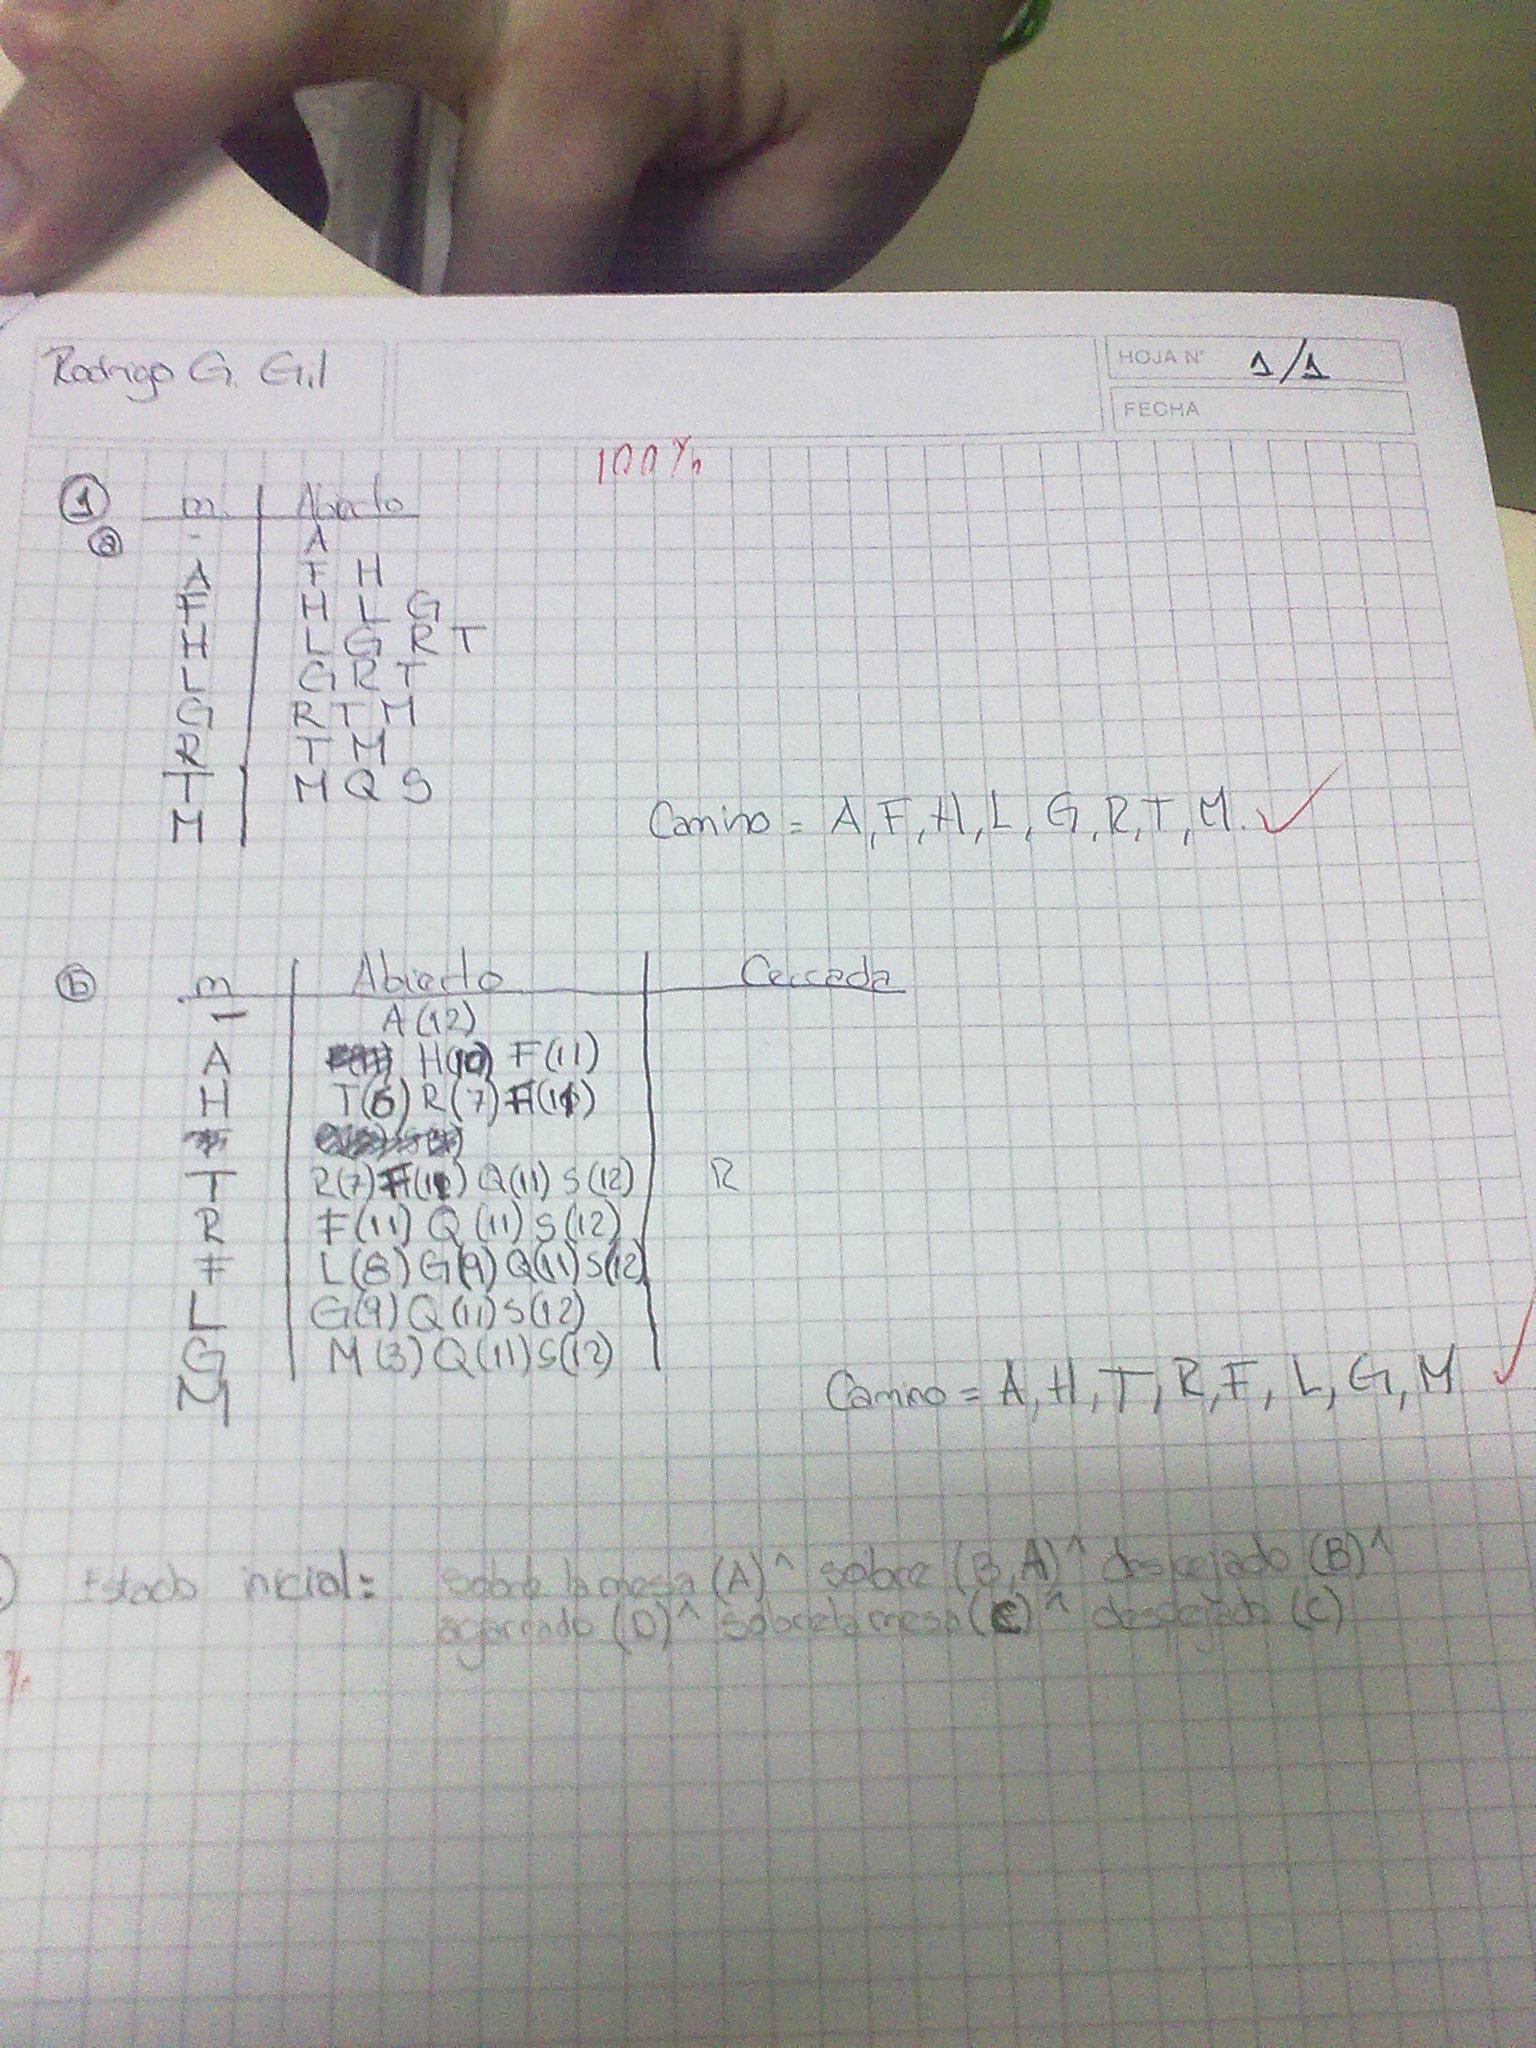 Rodrigo G. Gil
HOJA N° 1/1
FECHA
100%
1 m Abierto
a - A
A F H
F H L G
H L G R T
L G R T
G R T M
R T M
T M Q S
M
Camino = A, F, H, L, G, R, T, M.
b m Abierto Cerrada
- A(12)
A H(10) F(11)
H T(6) R(7) F(11)
T R(7) F(11) Q(11) S(12) R
R F(11) Q(11) S(12)
F L(8) G(9) Q(11) S(12)
L G(9) Q(11) S(12)
G M(3) Q(11) S(12)
M
Camino = A, H, T, R, F, L, G, M
Estado inicial: sobre la mesa (A) ^ sobre (B, A) ^ despejado (B) ^
agarrando (D) ^ sobre la mesa (C) ^ despejado (C)
%